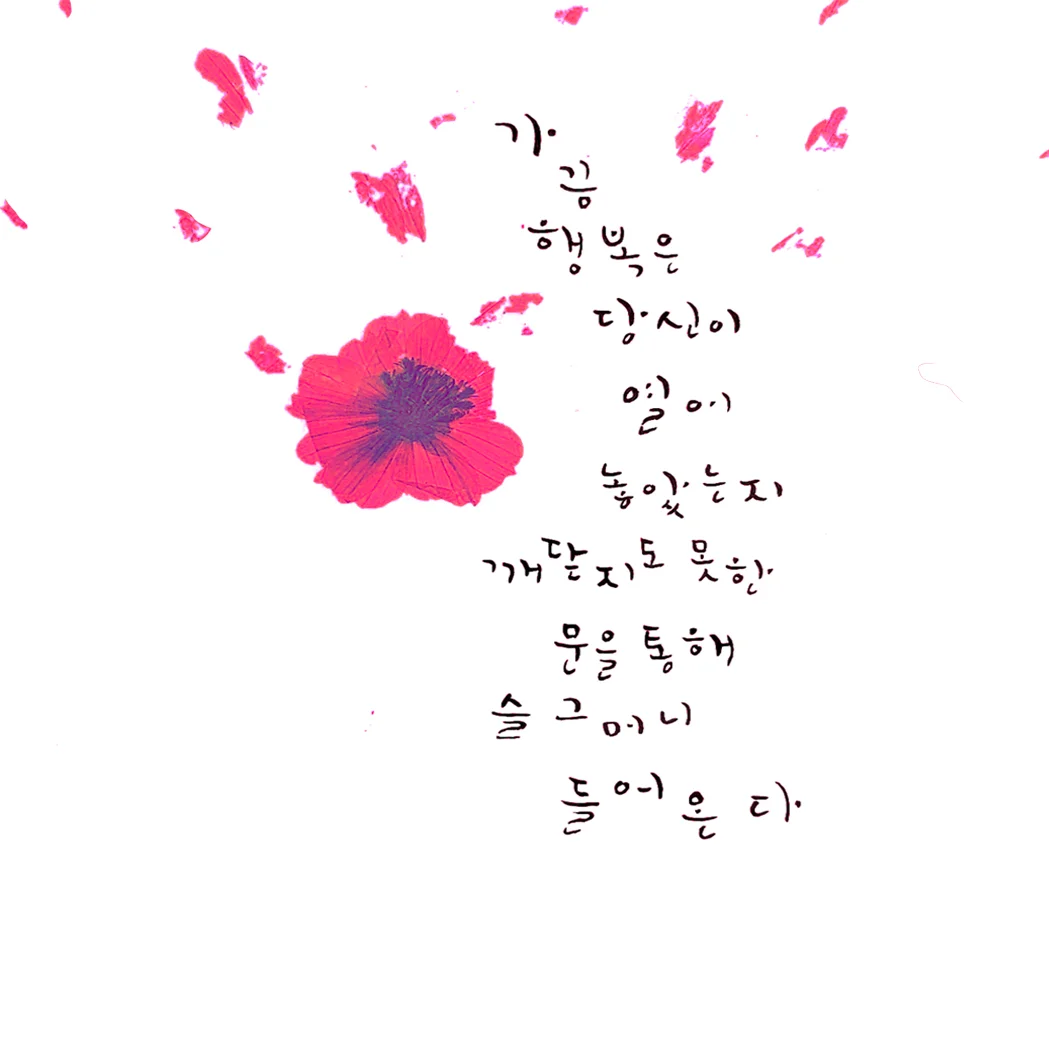 가
끔
행복은
당신이
열어
놓았는지
깨닫지도 못한
문을 통해
슬그머니
들어온다